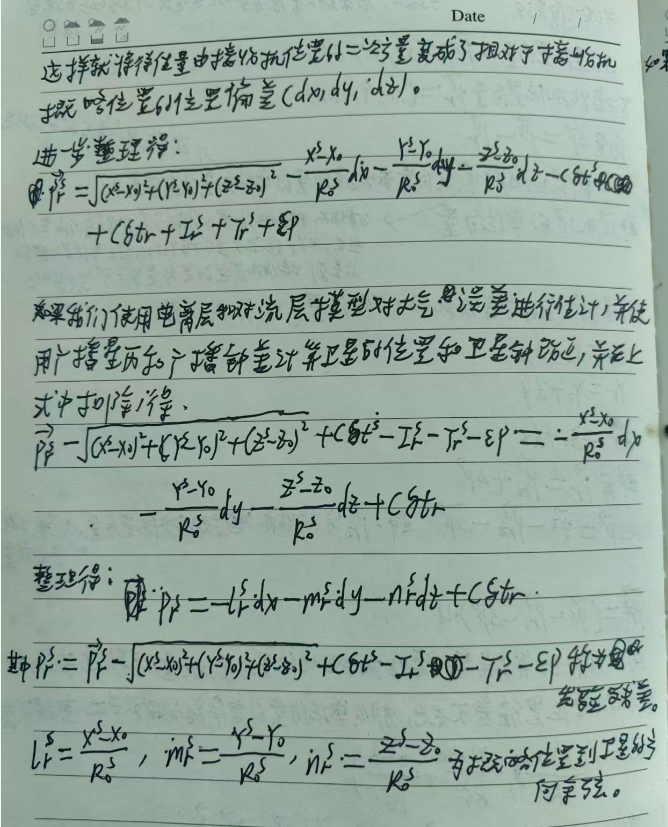 Date / /
这样就将待估量由接收机位置的三公量变成了相对于接收机
概略位置的位置偏差(dx, dy, dz)。
进一步整理得:
P⃗rˢ = √((Xˢ-X₀)²+(Yˢ-Y₀)²+(Zˢ-Z₀)²) - (Xˢ-X₀)/R₀ˢ dx - (Yˢ-Y₀)/R₀ˢ dy - (Zˢ-Z₀)/R₀ˢ dz - Cδtˢ
+ Cδtr + Irˢ + Trˢ + εp
如果我们使用电离层和对流层模型对大气误差进行估计,并使
用广播星历和广播钟差计算卫星的位置和卫星钟,并在上
式中扣除,得、
P⃗rˢ - √((Xˢ-X₀)²+(Yˢ-Y₀)²+(Zˢ-Z₀)²) + Cδtˢ - Irˢ - Trˢ - εp = - (Xˢ-X₀)/R₀ˢ dx
- (Yˢ-Y₀)/R₀ˢ dy - (Zˢ-Z₀)/R₀ˢ dz + Cδtr
整理得:
Prˢ = -lrˢ·dx - mrˢ·dy - nrˢdz + Cδtr.
其中 Prˢ = P⃗rˢ - √((Xˢ-X₀)²+(Yˢ-Y₀)²+(Zˢ-Z₀)²) + Cδtˢ - Irˢ - Trˢ - εp 称为
差。
lrˢ = (Xˢ-X₀)/R₀ˢ, mrˢ = (Yˢ-Y₀)/R₀ˢ, nrˢ = (Zˢ-Z₀)/R₀ˢ 为概略位置到卫星的方
向余弦。